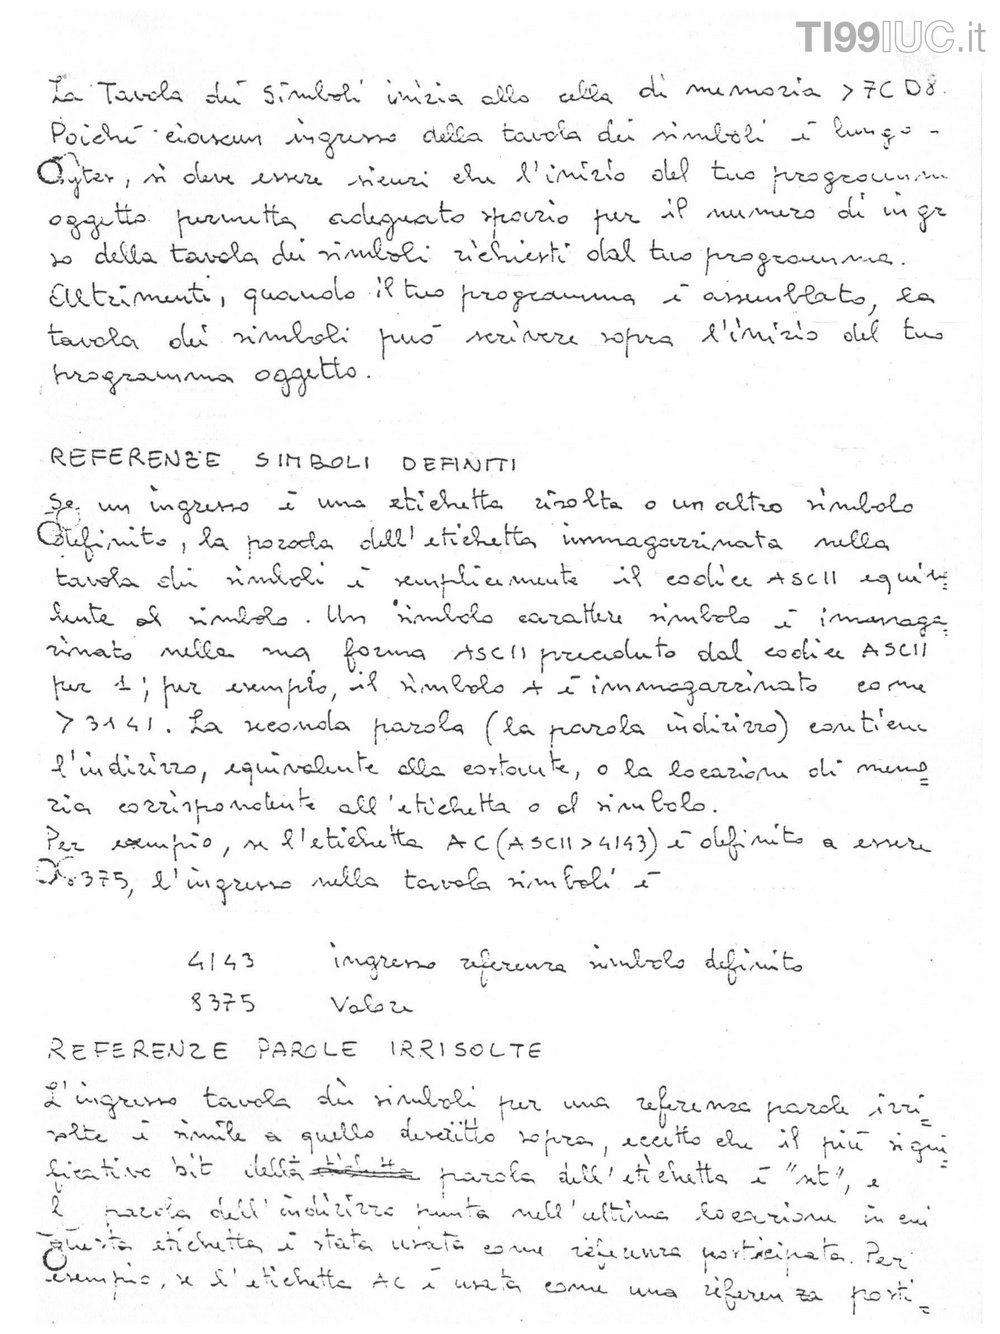 TI99IUC.it
La Tavola dei Simboli inizia alla cella di memoria >7CD8.
Poiché ciascun ingresso della tavola dei simboli è lungo
bytes, si deve essere sicuri che l'inizio del tuo programma
oggetto permetta adeguato spazio per il numero di ingr
so della tavola dei simboli richiesti dal tuo programma.
Altrimenti, quando il tuo programma è assemblato, la
tavola dei simboli può scrivere sopra l'inizio del tuo
programma oggetto.
REFERENZE SIMBOLI DEFINITI
Se un ingresso è una etichetta risolta o un altro simbolo
definito, la parola dell'etichetta immagazzinata nella
tavola dei simboli è semplicemente il codice ASCII equiva=
lente al simbolo. Un simbolo carattere simbolo è immaga=
zinato nella sua forma ASCII preceduto dal codice ASCII
per 1; per esempio, il simbolo A è immagazzinato come
>3141. La seconda parola (la parola indirizzo) contiene
l'indirizzo, equivalente alla costante, o la locazione di memo=
ria corrispondente all'etichetta o al simbolo.
Per esempio, se l'etichetta AC (ASCII >4143) è definito a essere
375, l'ingresso nella tavola simboli è
4143 ingresso referenza simbolo definito
8375 Valore
REFERENZE PAROLE IRRISOLTE
L'ingresso tavola dei simboli per una referenza parole irri=
solte è simile a quello descritto sopra, eccetto che il più signi=
ficativo bit della parola dell'etichetta è "set", e
l parola dell'indirizzo punta nell'ultima locazione in cui
questa etichetta è stata usata come referenza posticipata. Per
esempio, se l'etichetta AC è usata come una referenza posti=